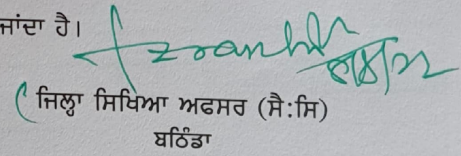 ਜਾਂਦਾ ਹੈ।
ਜਿਲ੍ਹਾ ਸਿਖਿਆ ਅਫਸਰ (ਸੈ:ਸਿ)
ਬਠਿੰਡਾ